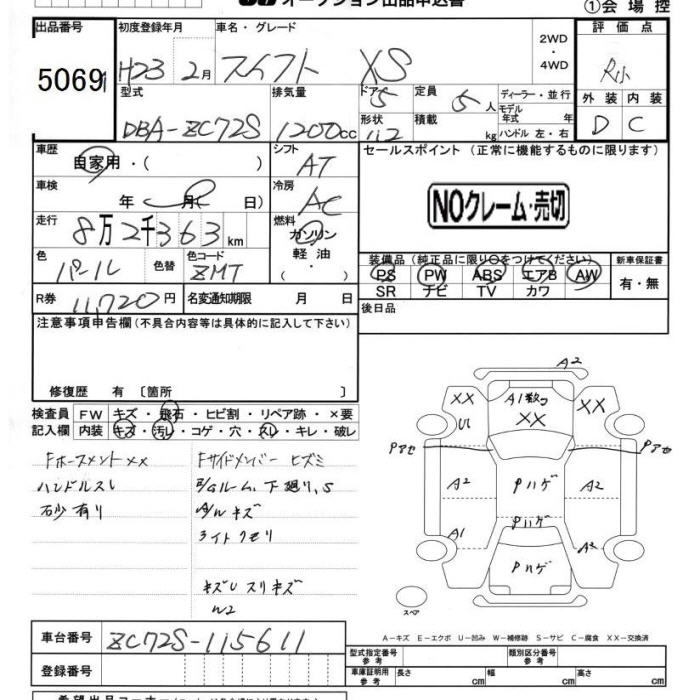 オークション出品申込書
①会場控
出品番号
5069
初度登録年月
H23 2月
車名・グレード
スイフト XS
2WD・4WD
評価点
R小
外装 内装
D C
型式
DBA-ZC72S
排気量
1200cc
ドア 5
定員 5人
形状 112
積載 kg
ディーラー・並行
モデル年式 年
ハンドル 左・右
車歴
自家用・( )
シフト
AT
車検
年 月( 日)
冷房
AC
走行
8万2千363km
燃料
ガソリン
軽油・
( )
色
パール
色替
色コード
ZMT
R券 11,720円
名変通知期限 月 日
セールスポイント(正常に機能するものに限ります)
NOクレーム・売切
装備品(純正品に限り○をつけてください)
PS PW ABS エアB AW
SR ナビ TV カワ
新車保証書
有・無
後日品
注意事項申告欄(不具合内容等は具体的に記入して下さい)
修復歴 有〔箇所 〕
検査員記入欄
FW キズ・飛石・ヒビ割・リペア跡・×要
内装 キズ・汚レ・コゲ・穴・スレ・キレ・破レ
Fホースメント××
ハンドルスレ
石少有り
Fサイドメンバー ヒズミ
E/Gルーム、下廻り、S
A/Wキズ
ライトクモリ
キズUスリキズ
W2
A2
XX
U1
A1数ヶ
XX
XX
Pアセ
Pアセ
A2
Pハゲ
A2
Pハゲ
A1
A2
Pハゲ
スペア
A-キズ E-エクボ U-凹み W-補修跡 S-サビ C-腐食 XX-交換済
車台番号
ZC72S-115611
登録番号
型式指定番号
参考
類別区分番号
参考
車庫証明用
参考
長さ cm
幅 cm
高さ cm